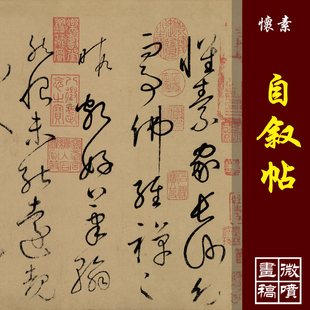 懷素
自叙帖
微噴
畫稿
懷素家長沙幼
而事佛經禪之
暇頗好筆翰
然恨未能遠覩